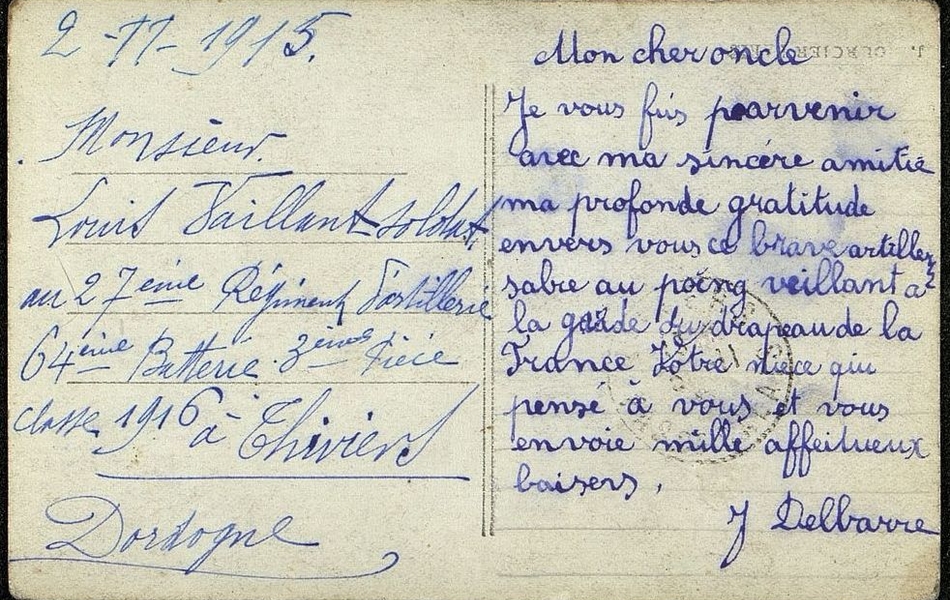 2-11-1915.
Monsieur.
Louis Vaillant soldat
au 27ème Régiment d'artillerie
64ème Batterie. 3ème Pièce
classe 1916 à Thiviers
Dordogne
Mon cher oncle
Je vous fais parvenir
avec ma sincére amitié
ma profonde gratitude
envers vous ce brave artilleur
sabre au poing veillant a
la garde du drapeau de la
France Votre nièce qui
pense à vous et vous
envoie mille affectueux
baisers.
J Delbarre